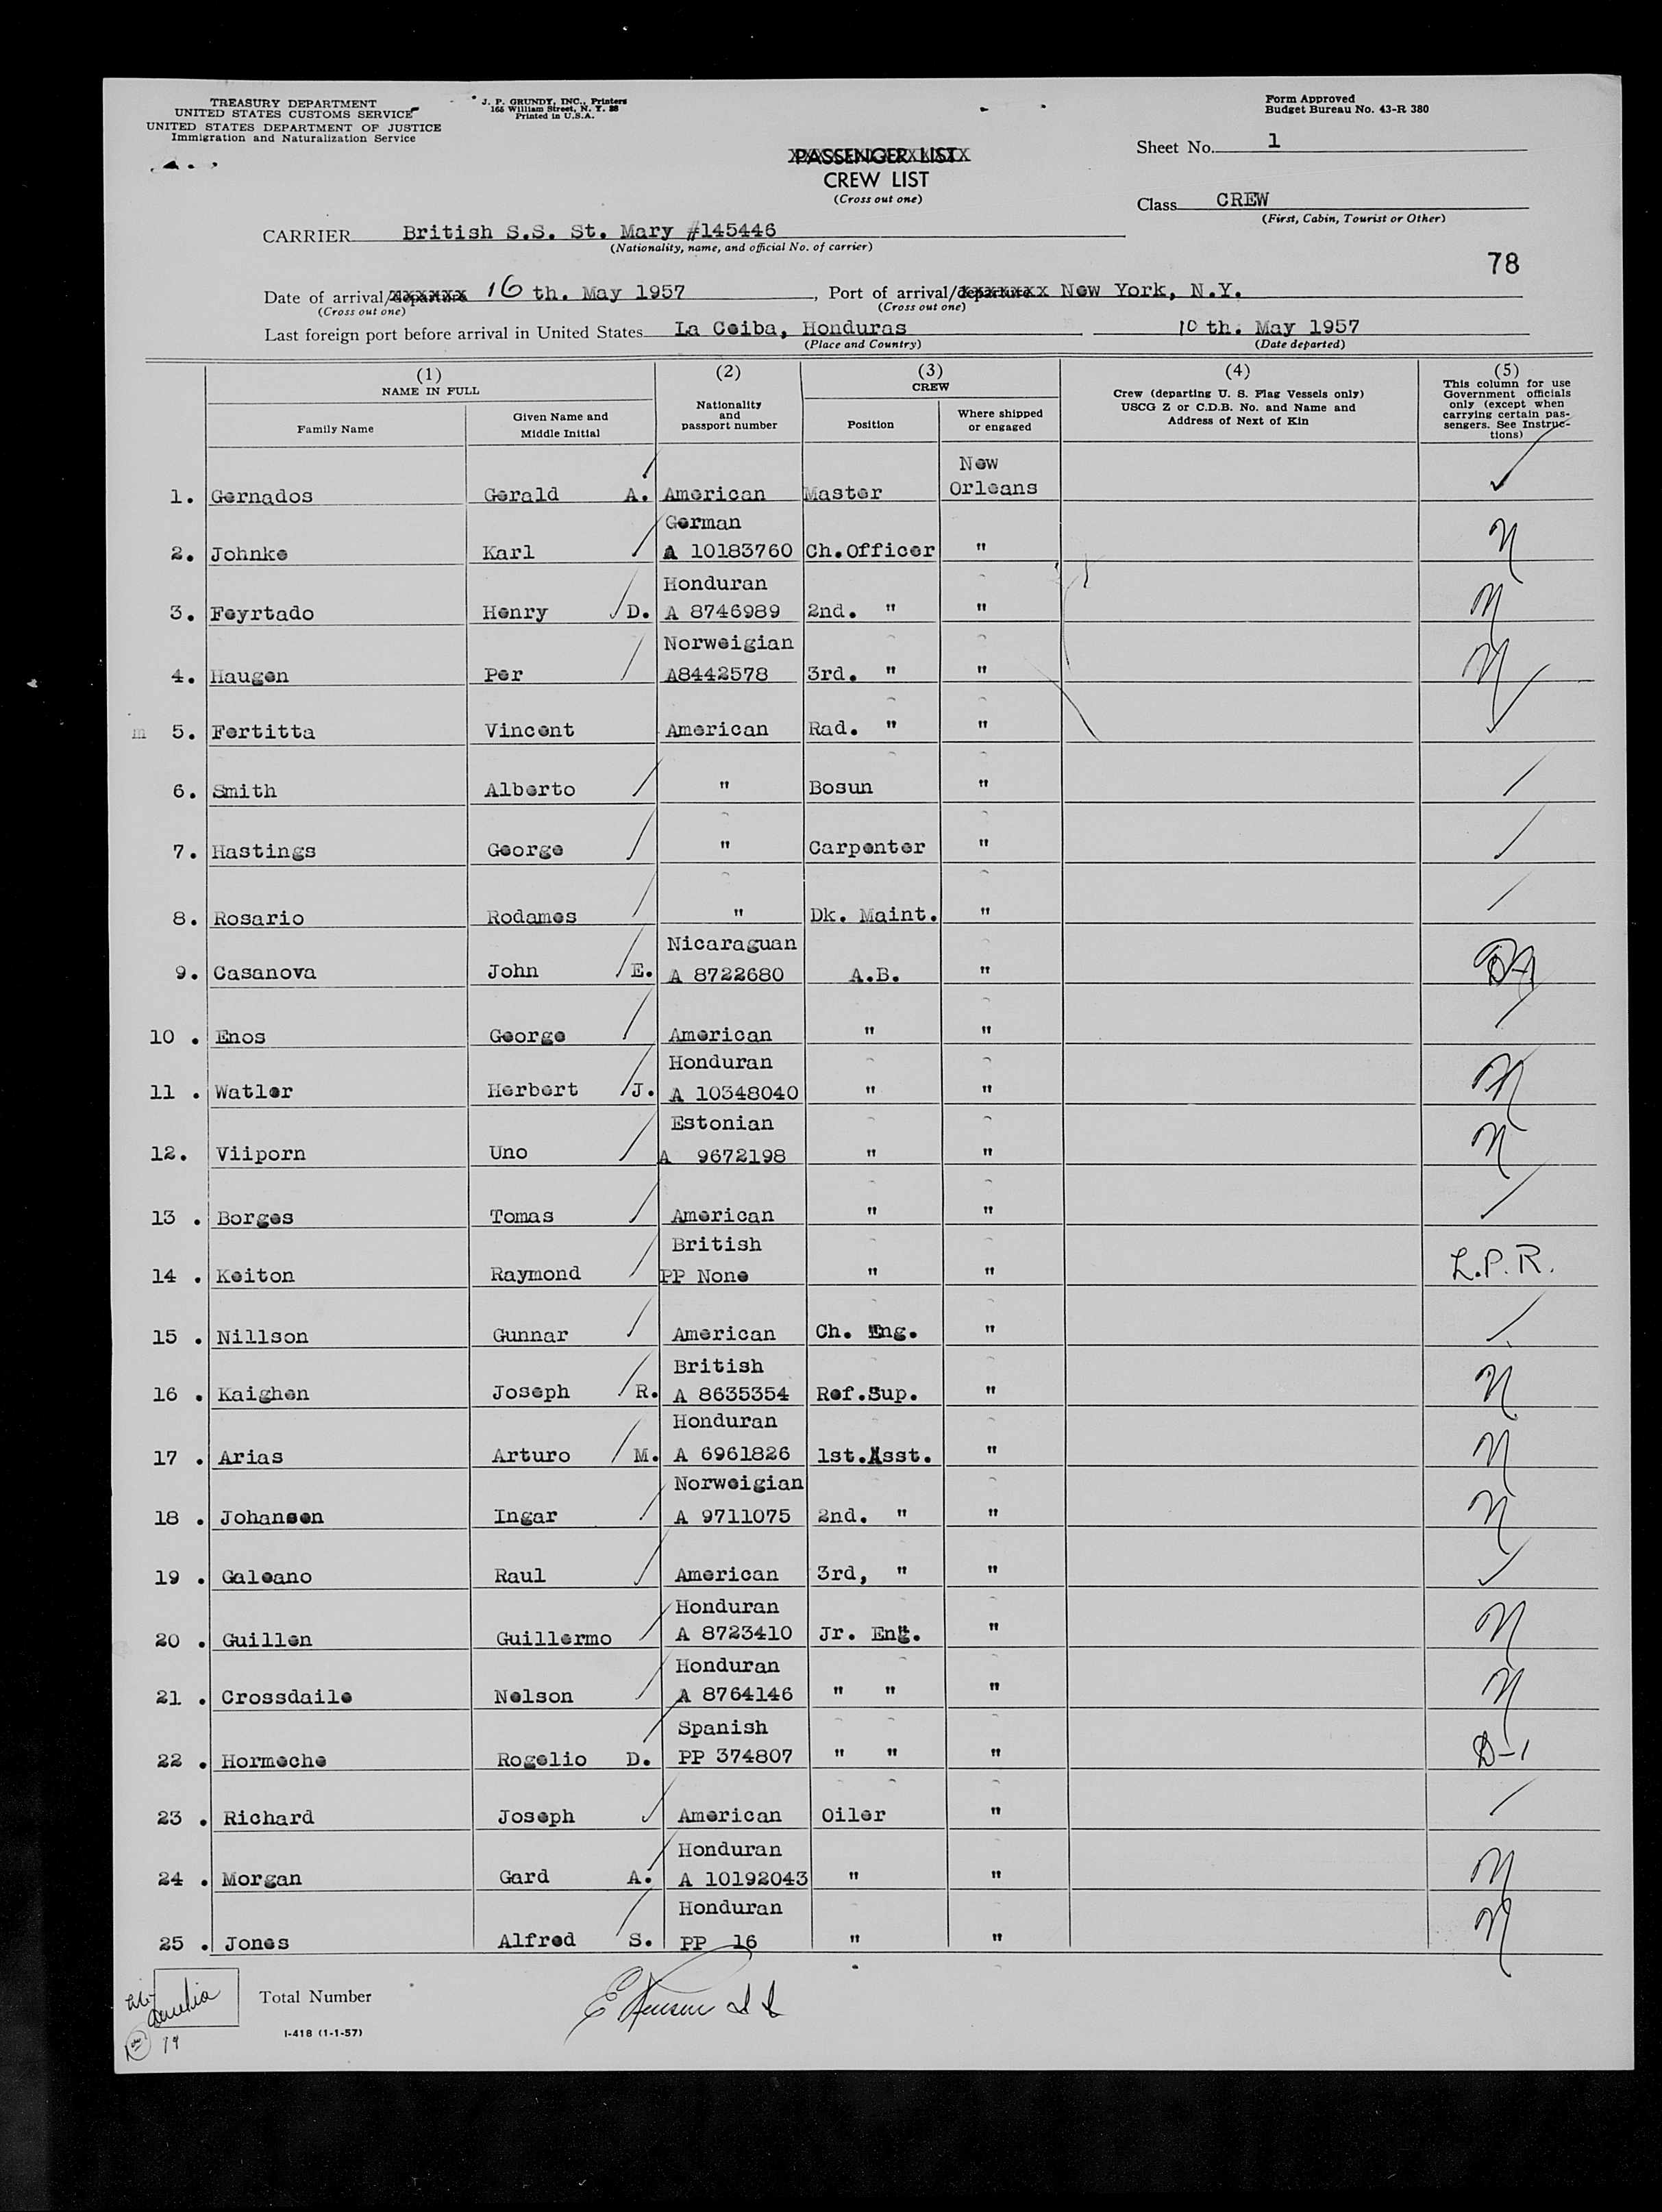 TREASURY DEPARTMENT
UNITED STATES CUSTOMS SERVICE
UNITED STATES DEPARTMENT OF JUSTICE
Immigration and Naturalization Service
J. P. GRUNDY, INC., Printers
165 William Street, N. Y. 38
Printed in U.S.A.
Form Approved
Budget Bureau No. 43-R 380
PASSENGER LIST
CREW LIST
(Cross out one)
Sheet No. 1
Class CREW
(First, Cabin, Tourist or Other)
CARRIER British S.S. St. Mary #145446
(Nationality, name, and official No. of carrier)
78
Date of arrival/departure 16 th. May 1957, Port of arrival/departure New York, N.Y.
(Cross out one) (Cross out one)
Last foreign port before arrival in United States La Ceiba, Honduras 10 th. May 1957
(Place and Country) (Date departed)
(1) (2) (3) (4) (5)
NAME IN FULL
Family Name
Given Name and Middle Initial
Nationality and passport number
CREW
Position
Where shipped or engaged
Crew (departing U. S. Flag Vessels only)
USCG Z or C.D.B. No. and Name and
Address of Next of Kin
This column for use
Government officials
only (except when
carrying certain pas-
sengers. See Instruc-
tions)
1. Gernados Gerald A. American Master New Orleans
2. Johnke Karl German A 10183760 Ch.Officer " N
3. Feyrtado Henry D. Honduran A 8746989 2nd. " " N
4. Haugen Per Norweigian A8442578 3rd. " " N
m 5. Fertitta Vincent American Rad. " "
6. Smith Alberto " Bosun "
7. Hastings George " Carpenter "
8. Rosario Rodames " Dk. Maint. "
9. Casanova John E. Nicaraguan A 8722680 A.B. "
10 . Enos George American " "
11 . Watler Herbert J. Honduran A 10348040 " " N
12. Viiporn Uno Estonian A 9672198 " " N
13 . Borges Tomas American " "
14 . Keiton Raymond British PP None " " L.P.R.
15 . Nillson Gunnar American Ch. Eng. "
16 . Kaighen Joseph R. British A 8635354 Ref.Sup. " N
17 . Arias Arturo M. Honduran A 6961826 1st.Asst. " N
18 . Johansen Ingar Norweigian A 9711075 2nd. " " N
19 . Galeano Raul American 3rd, " "
20 . Guillen Guillermo Honduran A 8723410 Jr. Eng. " N
21 . Crossdaile Nelson Honduran A 8764146 " " " N
22 . Hormeche Rogelio D. Spanish PP 374807 " " " D-1
23 . Richard Joseph American Oiler "
24 . Morgan Gard A. Honduran A 10192043 " " N
25 . Jones Alfred S. Honduran PP 16 " " N
Total Number
I-418 (1-1-57)